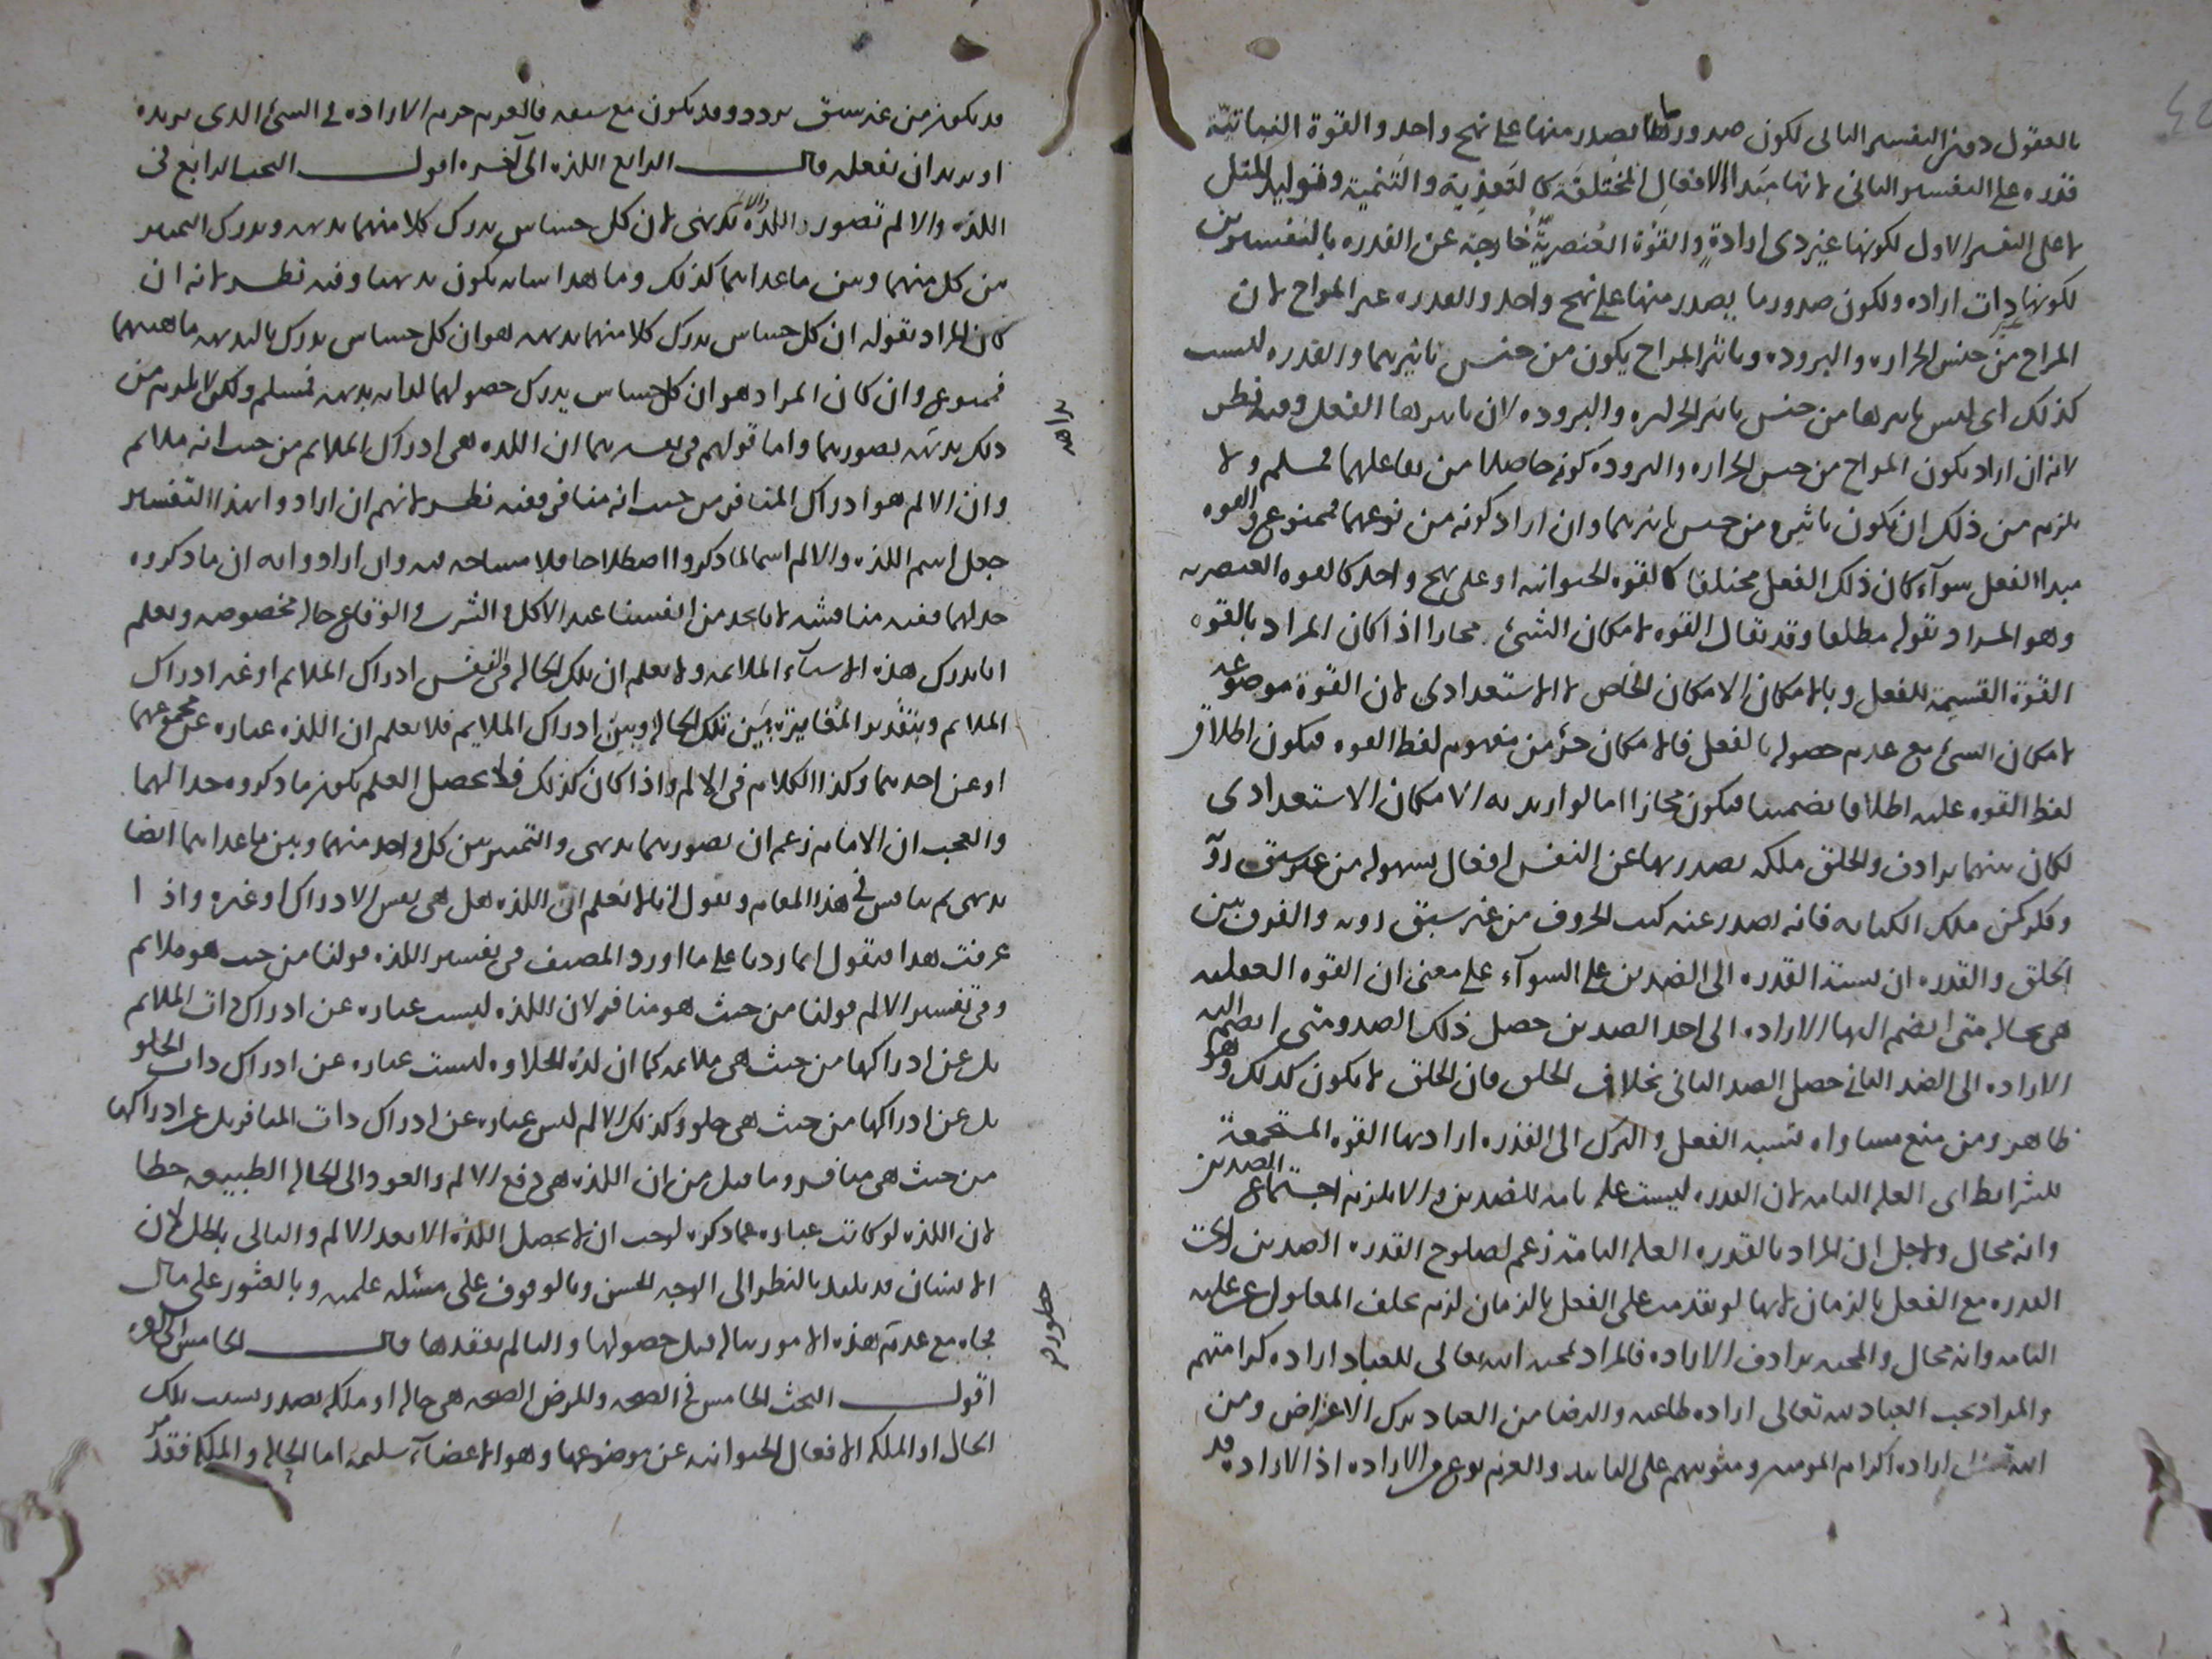 بالعقول دون التفسير الثانى لكون صدور ما يصدر منها على نهج واحد والقوة النباتية
قدرة على التفسير الثانى لانها مبدأ الافعال المختلفة كالتغذية والتنمية وتوليد المثل
لا على التفسير الاول لكونها غير ذى ارادة والقوة العنصرية خارجة عن القدرة بالتفسيرين
لكونها ذات ارادة ولكون صدور ما يصدر منها على نهج واحد والقدرة غير المزاج لان
المزاج من جنس الحرارة والبرودة وتاثير المزاج يكون من جنس تاثيرهما والقدرة ليست
كذلك اى ليس تاثيرها من جنس تاثير الحرارة والبرودة لان تاثيرها الفعل وفيه نظر
لانه ان اراد بكون المزاج من جنس الحرارة والبرودة كونه حاصلا من تفاعلهما فمسلم ولا
يلزم من ذلك ان يكون تاثيره من جنس تاثيرهما وان اراد كونه من نوعهما فممنوع والقوة
مبدا الفعل سوآء كان ذلك الفعل مختلفا كالقوة الحيوانية او على نهج واحد كالقوة العنصرية
وهو المراد بقوله مطلقا وقد يقال القوة لامكان الشئ مجازا اذا كان المراد بالقوة
القوة القسيمة للفعل وبالامكان الامكان الخاص لا الاستعدادى لان القوة موضوعة
لامكان الشئ مع عدم حصوله بالفعل فالامكان جزؤ من مفهوم لفظ القوة فيكون اطلاق
لفظ القوة عليه اطلاقا تضمنيا فيكون مجازا اما لو اريد به الامكان الاستعدادى
لكان بينهما ترادف والخلق ملكة يصدر بها عن النفس افعال بسهولة من غير سبق روّ
وفكر كمن ملك الكتابة فانه يصدر عنه كتب الحروف من غير سبق روية والفرق بين
الخلق والقدرة ان نسبة القدرة الى الضدين على السوآء على معنى ان القوة العقلية
هى بحالة متى انضم اليها الارادة الى احد الضدين حصل ذلك الضد ومتى انضم اليه
الارادة الى الضد الثانى حصل الضد الثانى بخلاف الخلق فان الخلق لا يكون كذلك وهو
ظاهر ومن منع مساواة نسبة الفعل والترك الى القدرة اراد بها القوة المستجمعة
للشرايط اى العلة التامة لان القدرة ليست علة تامة للضدين والا يلزم اجتماع الضدين
وانه محال ولاجل ان المراد بالقدرة العلة التامة زعم لصلوح القدرة الضدين
القدرة مع الفعل بالزمان لانها لو تقدمت على الفعل بالزمان لزم تخلف المعلول عن علته
التامة وانه محال والمحبة ترادف الارادة فالمراد بمحبة الله تعالى للعباد ارادة كرامتهم
والمراد بحب العباد لله تعالى ارادة طاعته والرضا من العباد ترك الاعتراض ومن
الله ارادة اكرام المومنين ومثوبتهم على التابيد والعزم نوع من الارادة اذ الارادة قد
قد يكون من غير سبق تردد وقد يكون مع سبقه فالعزم جزم الارادة فى الشئ الذى يريده
او يريد ان يفعله قال الرابع اللذة الى آخره اقول البحث الرابع فى
اللذة والالم تصور اللذة والالم بديهى لان كل حساس يدرك كلا منهما بديهة ويدرك التمييز
بين كل منهما وبين ما عداهما كذلك وما هذا شانه يكون بديهيا وفيه نظر لانه ان
كان المراد بقوله ان كل حساس يدرك كلا منهما بديهة هو ان كل حساس يدرك بالبديهة ماهيتهما
فممنوع وان كان المراد هو ان كل حساس يدرك حصولهما لذاته بديهة فمسلم ولكن لا يلزم من
ذلك بديهة تصورهما واما قولهم فى تفسيرهما ان اللذة هى ادراك الملايم من حيث انه ملايم
وان الالم هو ادراك المنافى من حيث انه منافى ففيه نظر لانهم ان ارادوا بهذا التفسير
جعل اسم اللذة والالم اسما لما ذكروا اصطلاحا فلا مشاحة فيه وان ارادوا به ان ما ذكروه
حد لهما ففيه مناقشة لانا نجد من انفسنا عند الاكل والشرب والوقاع حالة مخصوصة ونعلم
انا ندرك هذه الاشيآء الملايمة ولا نعلم ان تلك الحالة فى النفس ادراك الملايم او غير ادراك
الملايم وبتقدير المغايرة بين تلك الحالة وبين ادراك الملايم فلا نعلم ان اللذة عبارة عن مجموعهما
او عن احدهما وكذا الكلام فى الالم واذا كان كذلك فلا يحصل العلم بكون ما ذكروه حدا لهما
والعجب ان الامام زعم ان تصورهما بديهى والتمييز بين كل واحد منهما وبين ما عداهما ايضا
بديهى ثم ناقش فى هذا المقام ويقول انا لا نعلم ان اللذة هل هى نفس الادراك او غيره واذا
عرفت هذا فنقول انما زدنا على ما اورد المصنف فى تفسير اللذة قولنا من حيث هو ملايم
وفى تفسير الالم قولنا من حيث هو منافر لان اللذة ليست عبارة عن ادراك ذات الملايم
بل عن ادراكها من حيث هى ملايمة كما ان لذة الحلاوة ليست عبارة عن ادراك ذات الحلو
بل عن ادراكها من حيث هى حلو وكذلك الالم ليس عبارة عن ادراك ذات المنافر بل عن ادراكها
من حيث هى منافر وما قيل من ان اللذة هى دفع الالم والعود الى الحالة الطبيعية خطا
لان اللذة لو كانت عبارة عما ذكره لوجب ان لا يحصل اللذة الا بعد الالم والتالى باطل لان
الانسان قد يلتذ بالنظر الى الوجه الحسن وبالوقوف على مسئلة علمية وبالعثور على مال
فجاة مع عدم هذه الامور قبل حصولها والتالم بفقدها قال الخامس الى آخره
اقول البحث الخامس فى الصحة والمرض الصحة هى حالة او ملكة يصدر بسبب تلك
الحال او الملكة الافعال الحيوانية عن موضوعها وهو الاعضآء سليمة اما الحالة والملكة فقد مر
بداهة